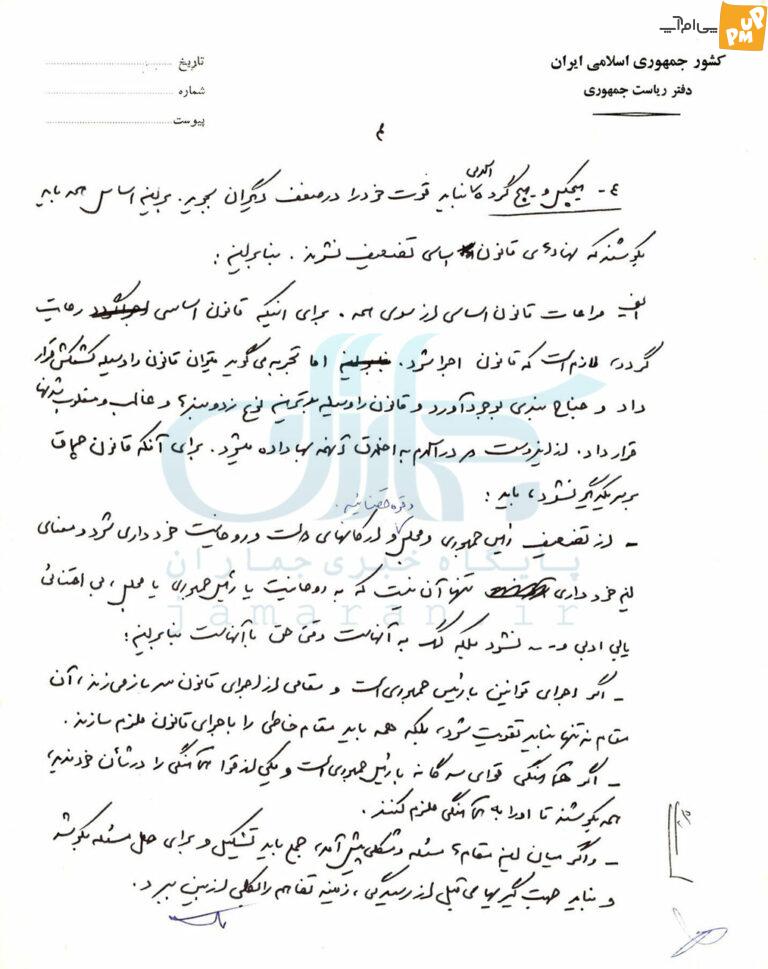 پی‌ام‌آپ
UP
PM
کشور جمهوری اسلامی ایران
دفتر ریاست جمهوری
تاریخ
شماره
پیوست
۴
۴- هیچکس و هیچ گروه اسلامی نباید قوت خود را در ضعف دیگران بجوید. بر این اساس همه باید
بکوشند که نهادهای قانون اساسی تضعیف نشوند. بنابراین:
الف مراعات قانون اساسی از سوی همه. برای اینکه قانون اساسی رعایت
گردد، لازم است که قانون اجرا شود. اما تجربه می‌گوید میتوان قانون را وسیله کشمکش قرار
داد و جناح بندی بوجود آورد و قانون را وسیله این نوع زد و بندها و غالب و مغلوب شدنها
قرار داد. از اینروست که در اسلام به اخلاق آنهمه بها داده میشود. برای آنکه قانون چماق
بر سر یکدیگر نشود، باید:
- از تضعیف رئیس جمهوری و مجلس و قوه قضائیه و ارگانهای دولت و روحانیت خودداری شود و معنای
این خودداری تنها آن نیست که به روحانیت یا رئیس جمهوری یا مجلس، بی اعتنائی
یا بی ادبی و... نشود بلکه کمک به آنهاست وقتی حق با آنهاست بنابراین:
- اگر اجرای قوانین با رئیس جمهوری است و مقامی از اجرای قانون سر باز می‌زند، آن
مقام نه تنها نباید تقویت شود، بلکه همه باید مقام خاطی را باجرای قانون ملزم سازند.
- اگر هماهنگی قوای سه گانه با رئیس جمهوری است و یکی از قوا هماهنگی را در شأن خود ندید،
همه بکوشند تا او را به هماهنگی ملزم کنند.
- و اگر میان این مقام‌ها مسئله و مشکلی پیش آمد، جمع باید تشکیل و برای حل مسئله بکوشد
و نباید جهت گیریهای قبل از رسیدگی، زمینه تفاهم را بکلی از بین ببرد.
پایگاه خبری جماران
jamaran.ir